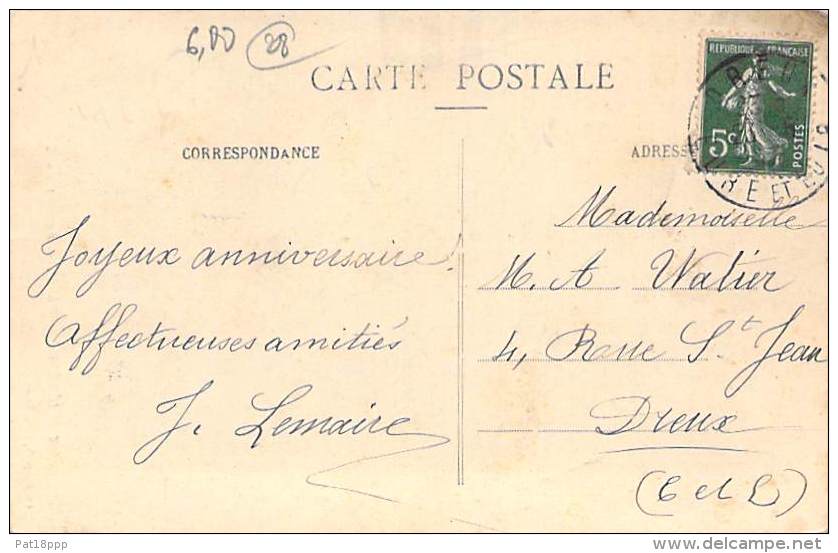 6,00 28
CARTE POSTALE
CORRESPONDANCE
ADRESS
REPUBLIQUE FRANÇAISE
5c
POSTES
Joyeux anniversaire!
Affectueuses amitiés
J. Lemaire
Mademoiselle
M. A Walier
4, Rue St Jean
Dreux
(E et L)
Pat18ppp
www.delcampe.net